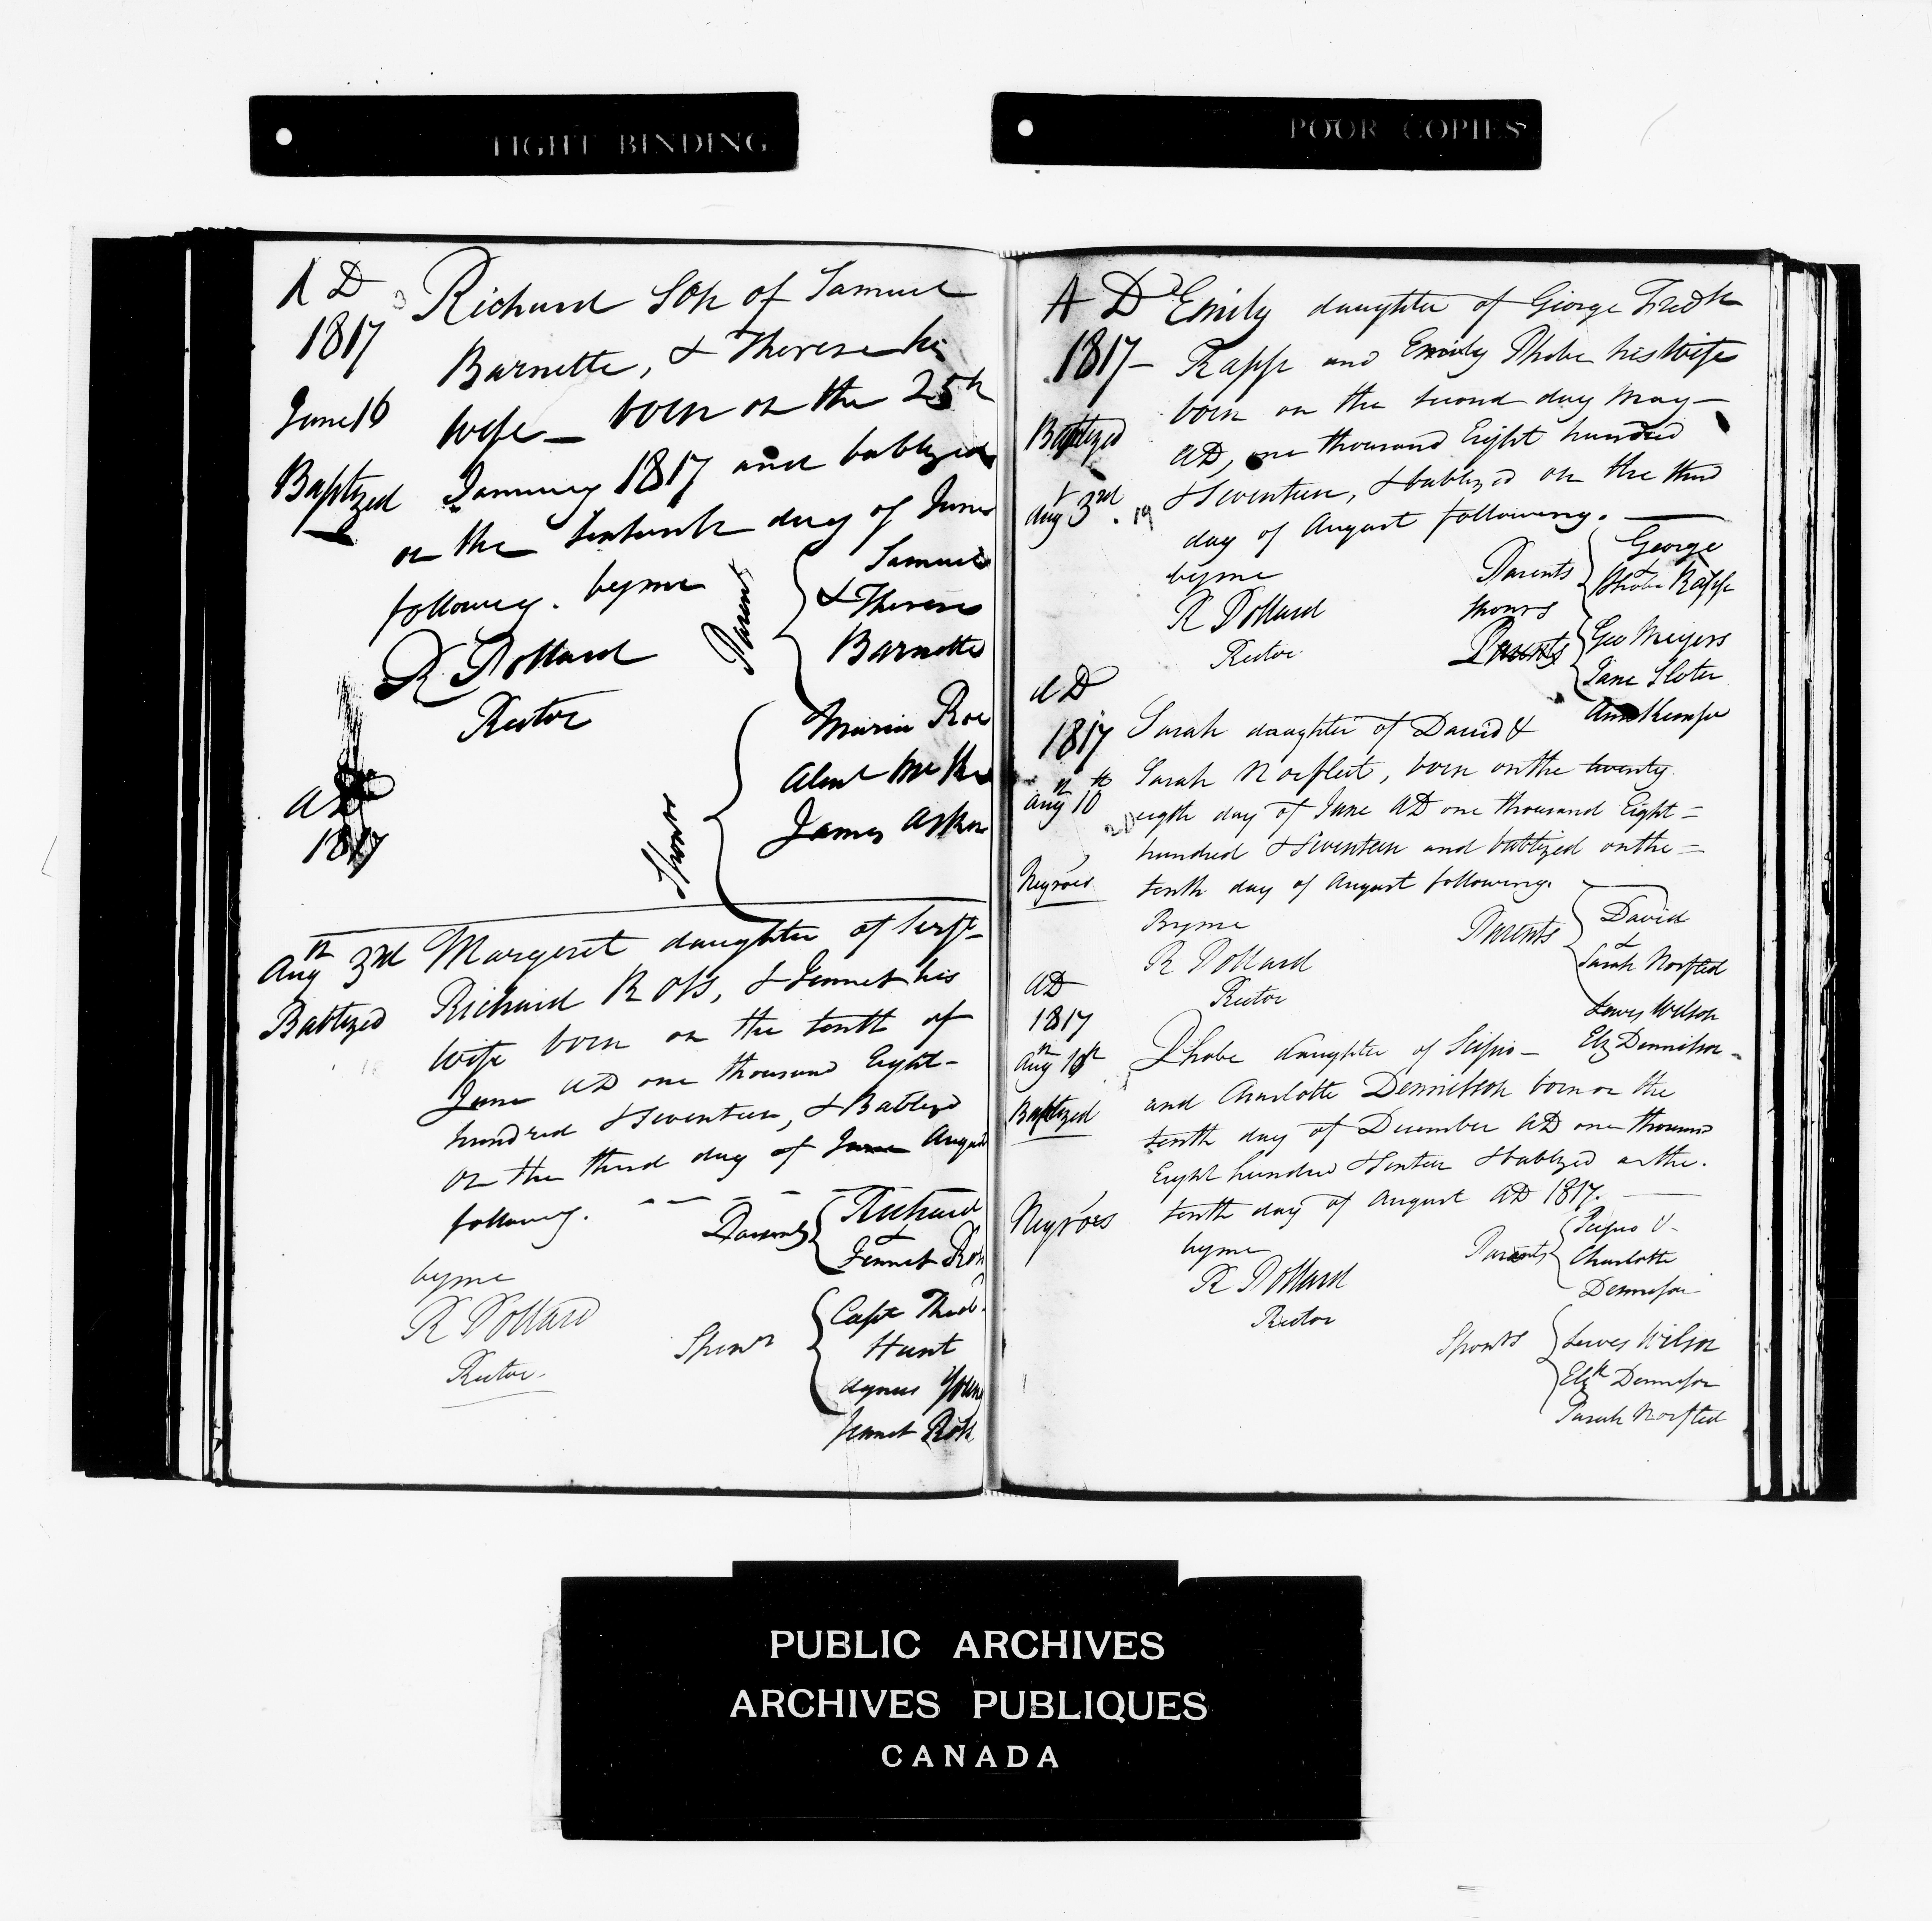 TIGHT BINDING
POOR COPIES
A D
1817
June 16
Baptized
Richard Son of Samuel
Barnette, & Therese his
wife — born on the 25th
January 1817 and babtized
on the sixteenth day of June
following. by me
R Pollard
Rector
Parents
Samuel
& Therese
Barnette
Sponsrs
Maria Roe
James Askin
AD
1817
Augt 3rd
Babtized
Margeret daughter of Serjt
Richard Ross, & Jennet his
wife born on the tenth of
June AD one thousand Eight-
hundred & Seventeen, & Babtized
on the third day of June August
following.
by me
R Pollard
Rector
Parents
Richard
&
Jennet Ross
Sponsrs
Capt Theod.
Hunt
Agnus Young
Jennet Ross
A D
1817 –
Baptized
Augt 3rd
19
Emily daughter of George Fredk
Rapp and Emily Phobe his Wife
born on the second day May –
AD, one thousand Eight hundred
& Seventeen, & babtized on the third
day of August following.
by me
R Pollard
Rector
Parents
George
&
Phobe Rapp
Sponsrs
Parents
Geo Meyers
Jane Sloter
Ann Kemp
AD
1817
Augt 10th
20
Negroes
Sarah daughter of David &
Sarah Norfleet, born on the twenty
eigth day of June AD one thousand Eight =
hundred & Seventeen and babtized on the =
tenth day of August following.
By me
R Pollard
Rector
Parents
David
&
Sarah Norfled
Lewis Wilson
Elz Dennison
AD
1817
Augt 10th
Baptized
Negroes
Phobe daughter of Scipio –
and Charlotte Dennison born on the
tenth day of December AD one thousand
Eight hundred & Sixteen & babtized on the.
tenth day of August AD 1817.
by me
R Pollard
Rector
Parents
Scipio &
Charlotte
Dennison
Sponsrs
Lewes Wilson
Elzth Dennison
Sarah Norfled
PUBLIC ARCHIVES
ARCHIVES PUBLIQUES
CANADA